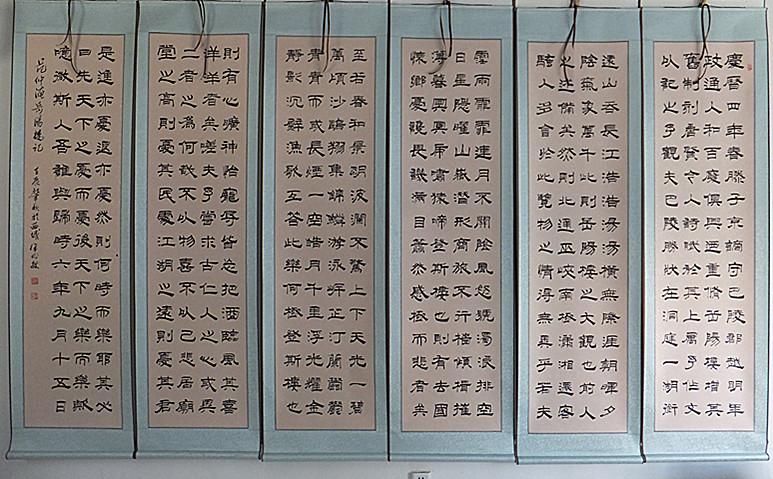 慶曆四年春滕子京謫守巴陵郡越明年
政通人和百廢俱興迺重脩岳陽樓增其
舊制刻唐賢今人詩賦於其上屬予作文
以記之予觀夫巴陵勝狀在洞庭一湖銜
遠山吞長江浩浩湯湯橫無際涯朝暉夕
陰氣象萬千此則岳陽樓之大觀也前人
之述備矣然則北通巫峽南極瀟湘遷客
騷人多會於此覽物之情得無異乎若夫
霪雨霏霏連月不開陰風怒號濁浪排空
日星隱曜山嶽潛形商旅不行檣傾楫摧
薄暮冥冥虎嘯猿啼登斯樓也則有去國
懷鄉憂讒畏譏滿目蕭然感極而悲者矣
至若春和景明波瀾不驚上下天光一碧
萬頃沙鷗翔集錦鱗游泳岸芷汀蘭鬱鬱
青青而或長煙一空皓月千里浮光耀金
靜影沉璧漁歌互答此樂何極登斯樓也
則有心曠神怡寵辱皆忘把酒臨風其喜
洋洋者矣嗟夫予嘗求古仁人之心或異
二者之為何哉不以物喜不以己悲居廟
堂之高則憂其民處江湖之遠則憂其君
是進亦憂退亦憂然則何時而樂耶其必
曰先天下之憂而憂後天下之樂而樂歟
噫微斯人吾誰與歸時六年九月十五日
范仲淹岳陽樓記